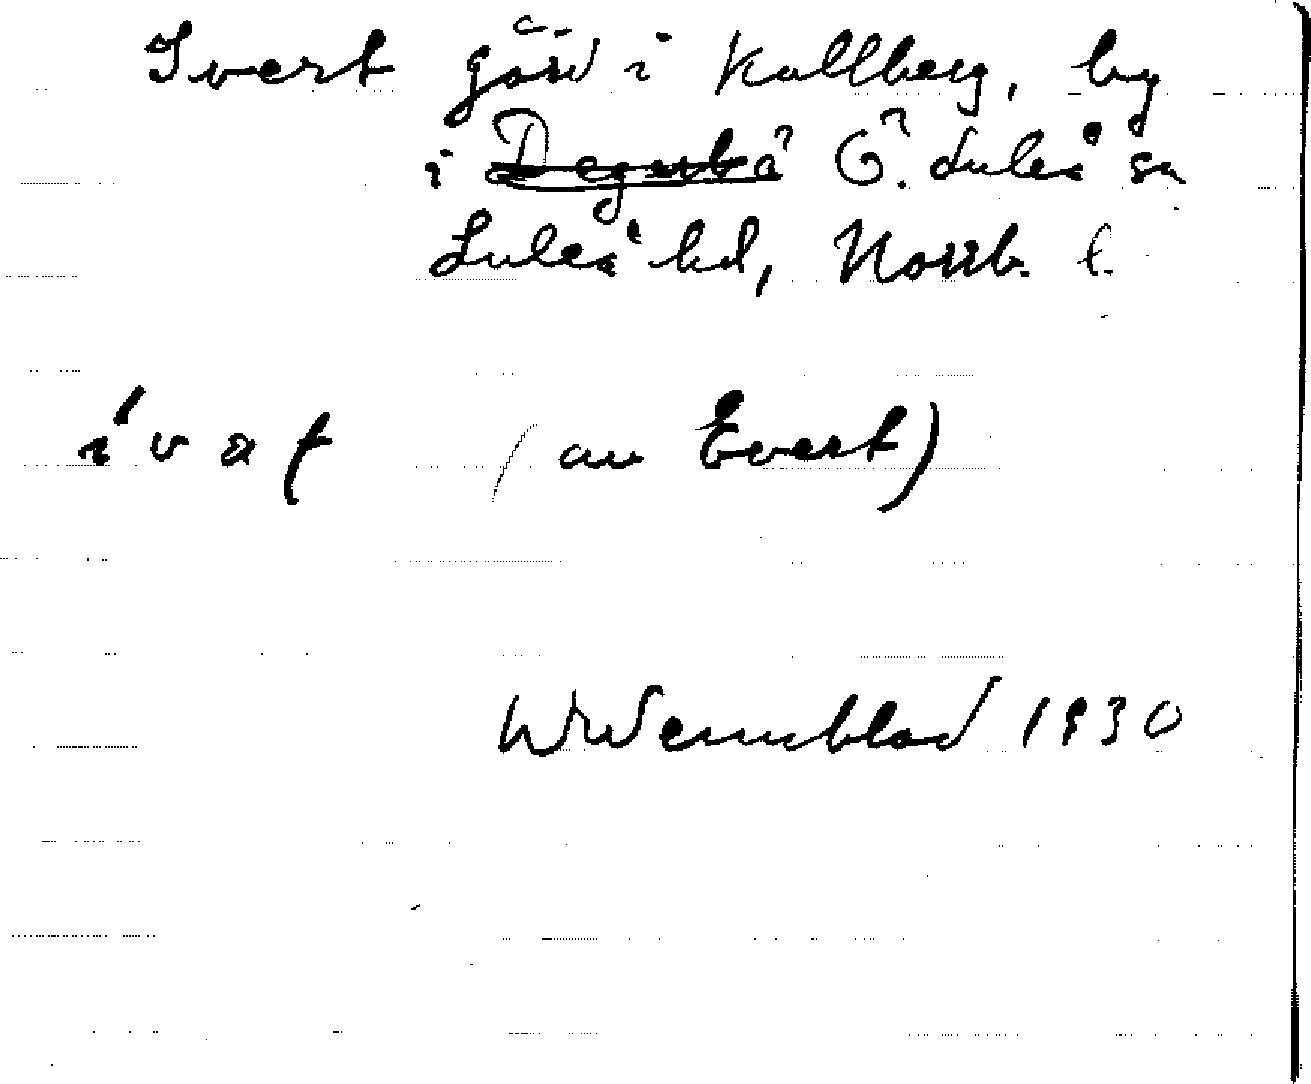 Ivert gård i Kallberg, by
i Ö. Luleå sn
Luleå hd, Norrb. l.
í v a t (av Evert)
Wennblad 1930